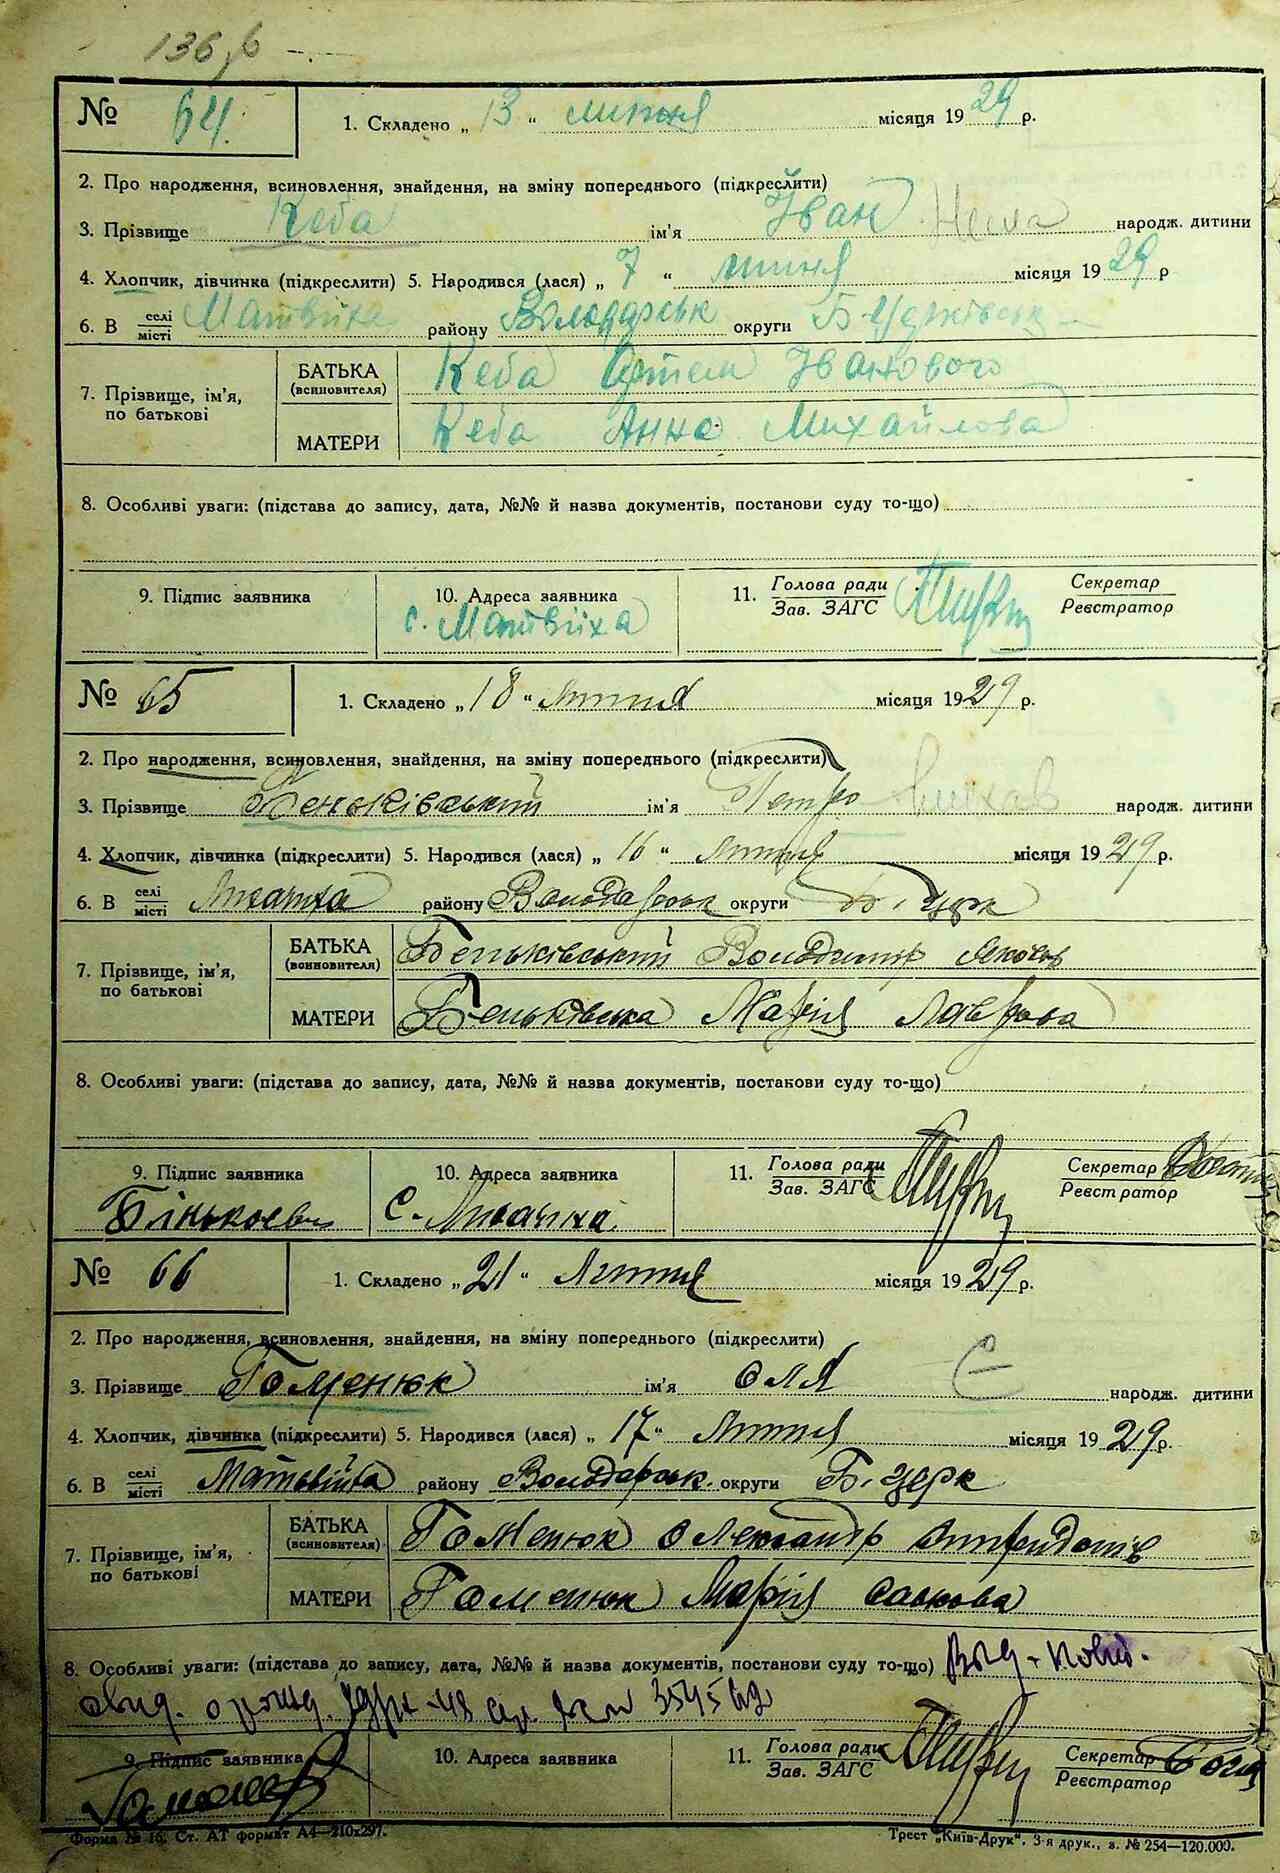 136
№ 64. 1. Складено „ 13 " липня місяця 19 29 р.
2. Про народження, всиновлення, знайдення, на зміну попереднього (підкреслити)
3. Прізвище Кеба ім'я Іван Нема народж. дитини
4. Хлопчик, дівчинка (підкреслити) 5. Народився (лася) „ 7 " липня місяця 19 29 р
6. В селі місті Матвіїха району Володарськ округи
БАТЬКА Кеба Артем Іванового
7. Прізвище, ім'я, (всиновителя)
по батькові
МАТЕРИ Кеба Анна Михайлова
8. Особливі уваги: (підстава до запису, дата, №№ й назва документів, постанови суду то-що)
9. Підпис заявника 10. Адреса заявника 11. Голова ради Зав. ЗАГС Секретар Реєстратор
с. Матвіїха
№ 65 1. Складено „ 18 " липня місяця 19 29 р.
2. Про народження, всиновлення, знайдення, на зміну попереднього (підкреслити)
3. Прізвище Беньківський ім'я Петро народж. дитини
4. Хлопчик, дівчинка (підкреслити) 5. Народився (лася) „ 16 " липня місяця 19 29 р.
6. В селі місті району Володарськ округи Б. церк
БАТЬКА Беньківський Володимир Яковів
7. Прізвище, ім'я, (всиновителя)
по батькові
МАТЕРИ Беньківська Марія Лаврова
8. Особливі уваги: (підстава до запису, дата, №№ й назва документів, постанови суду то-що)
9. Підпис заявника 10. Адреса заявника 11. Голова ради Зав. ЗАГС Секретар Реєстратор
с.
№ 66 1. Складено „ 21 " липня місяця 19 29 р.
2. Про народження, всиновлення, знайдення, на зміну попереднього (підкреслити)
3. Прізвище Гоменюк ім'я Оля народж. дитини
4. Хлопчик, дівчинка (підкреслити) 5. Народився (лася) „ 17 " липня місяця 19 29 р.
6. В селі місті Матвійха району Володарськ. округи Б. церк
БАТЬКА Гоменюк Олександр
7. Прізвище, ім'я, (всиновителя)
по батькові
МАТЕРИ Гоменюк Марія Савкова
8. Особливі уваги: (підстава до запису, дата, №№ й назва документів, постанови суду то-що)
354562
9. Підпис заявника 10. Адреса заявника 11. Голова ради Зав. ЗАГС Секретар Реєстратор
Форма № 16. Ст. АТ формат А4—210х297. Трест „Київ-Друк". 3-я друк., з. № 254—120.000.